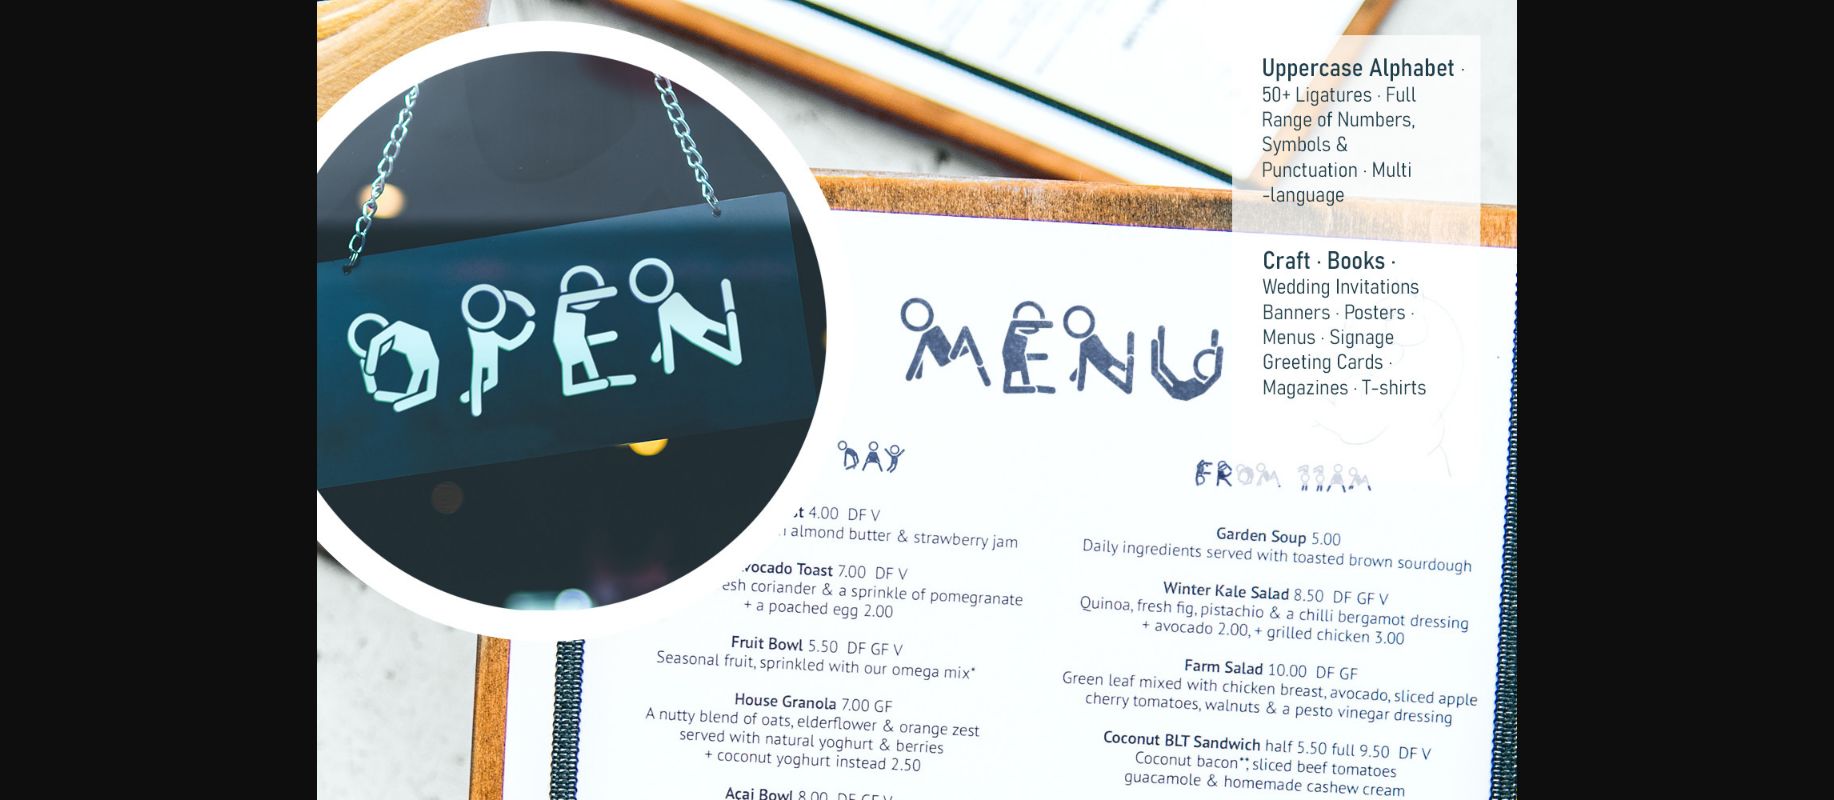 OPEN
Uppercase Alphabet ·
50+ Ligatures · Full
Range of Numbers,
Symbols &
Punctuation · Multi
-language
Craft · Books ·
Wedding Invitations
Banners · Posters ·
Menus · Signage
Greeting Cards ·
Magazines · T-shirts
MENU
DAY
4.00 DF V
almond butter & strawberry jam
Toast 7.00 DF V
coriander & a sprinkle of pomegranate
+ a poached egg 2.00
Fruit Bowl 5.50 DF GF V
Seasonal fruit, sprinkled with our omega mix*
House Granola 7.00 GF
A nutty blend of oats, elderflower & orange zest
served with natural yoghurt & berries
+ coconut yoghurt instead 2.50
Acai Bowl 8.00 DF GF V
FROM 11AM
Garden Soup 5.00
Daily ingredients served with toasted brown sourdough
Winter Kale Salad 8.50 DF GF V
Quinoa, fresh fig, pistachio & a chilli bergamot dressing
+ avocado 2.00, + grilled chicken 3.00
Farm Salad 10.00 DF GF
Green leaf mixed with chicken breast, avocado, sliced apple
cherry tomatoes, walnuts & a pesto vinegar dressing
Coconut BLT Sandwich half 5.50 full 9.50 DF V
Coconut bacon**, sliced beef tomatoes
guacamole & homemade cashew cream